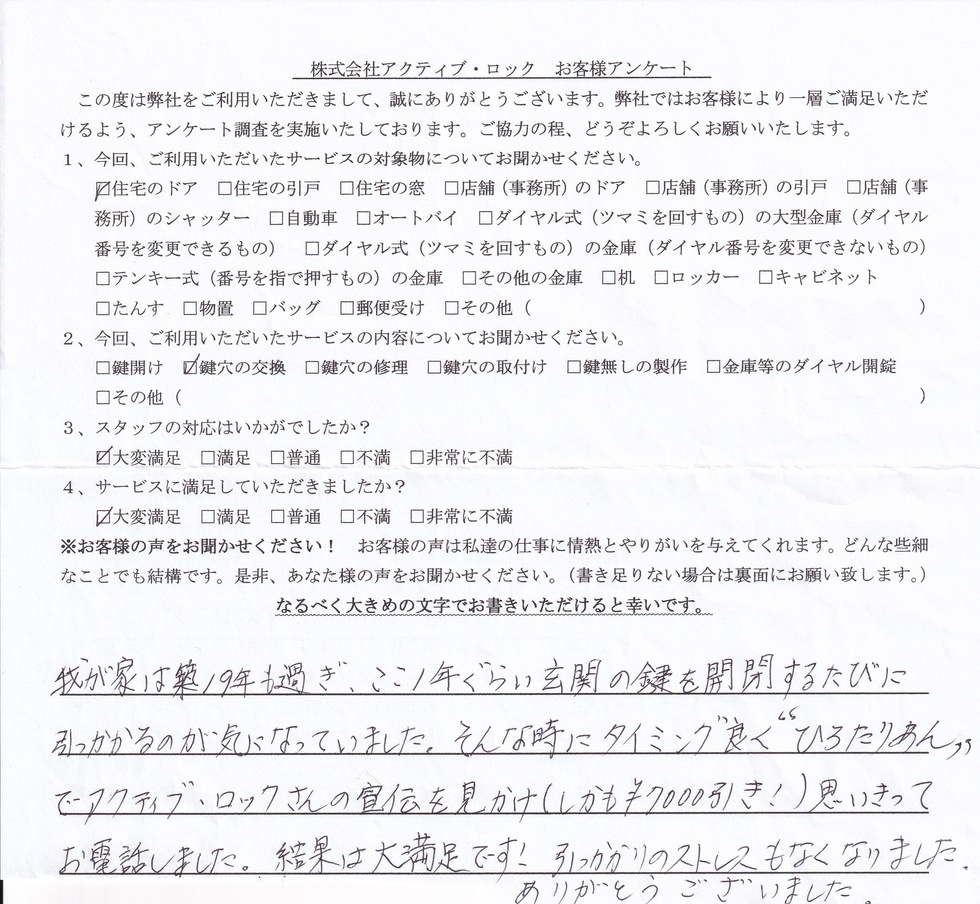 株式会社アクティブ・ロック　お客様アンケート
この度は弊社をご利用いただきまして、誠にありがとうございます。弊社ではお客様により一層ご満足いただ
けるよう、アンケート調査を実施いたしております。ご協力の程、どうぞよろしくお願いいたします。
1、今回、ご利用いただいたサービスの対象物についてお聞かせください。
☑住宅のドア　□住宅の引戸　□住宅の窓　□店舗（事務所）のドア　□店舗（事務所）の引戸　□店舗（事
務所）のシャッター　□自動車　□オートバイ　□ダイヤル式（ツマミを回すもの）の大型金庫（ダイヤル
番号を変更できるもの）　□ダイヤル式（ツマミを回すもの）の金庫（ダイヤル番号を変更できないもの）
□テンキー式（番号を指で押すもの）の金庫　□その他の金庫　□机　□ロッカー　□キャビネット
□たんす　□物置　□バッグ　□郵便受け　□その他（　　　）
2、今回、ご利用いただいたサービスの内容についてお聞かせください。
□鍵開け　☑鍵穴の交換　□鍵穴の修理　□鍵穴の取付け　□鍵無しの製作　□金庫等のダイヤル開錠
□その他（　　　）
3、スタッフの対応はいかがでしたか？
☑大変満足　□満足　□普通　□不満　□非常に不満
4、サービスに満足していただきましたか？
☑大変満足　□満足　□普通　□不満　□非常に不満
※お客様の声をお聞かせください！　お客様の声は私達の仕事に情熱とやりがいを与えてくれます。どんな些細
なことでも結構です。是非、あなた様の声をお聞かせください。（書き足りない場合は裏面にお願い致します。）
なるべく大きめの文字でお書きいただけると幸いです。
我が家は築19年も過ぎ、ここ1年ぐらい玄関の鍵を開閉するたびに
引っかかるのが気になっていました。そんな時にタイミング良く“ひろたりあん”
でアクティブ・ロックさんの宣伝を見かけ(しかも¥7000引き！)思いきって
お電話しました。結果は大満足です！ 引っかかりのストレスもなくなりました。
ありがとうございました。